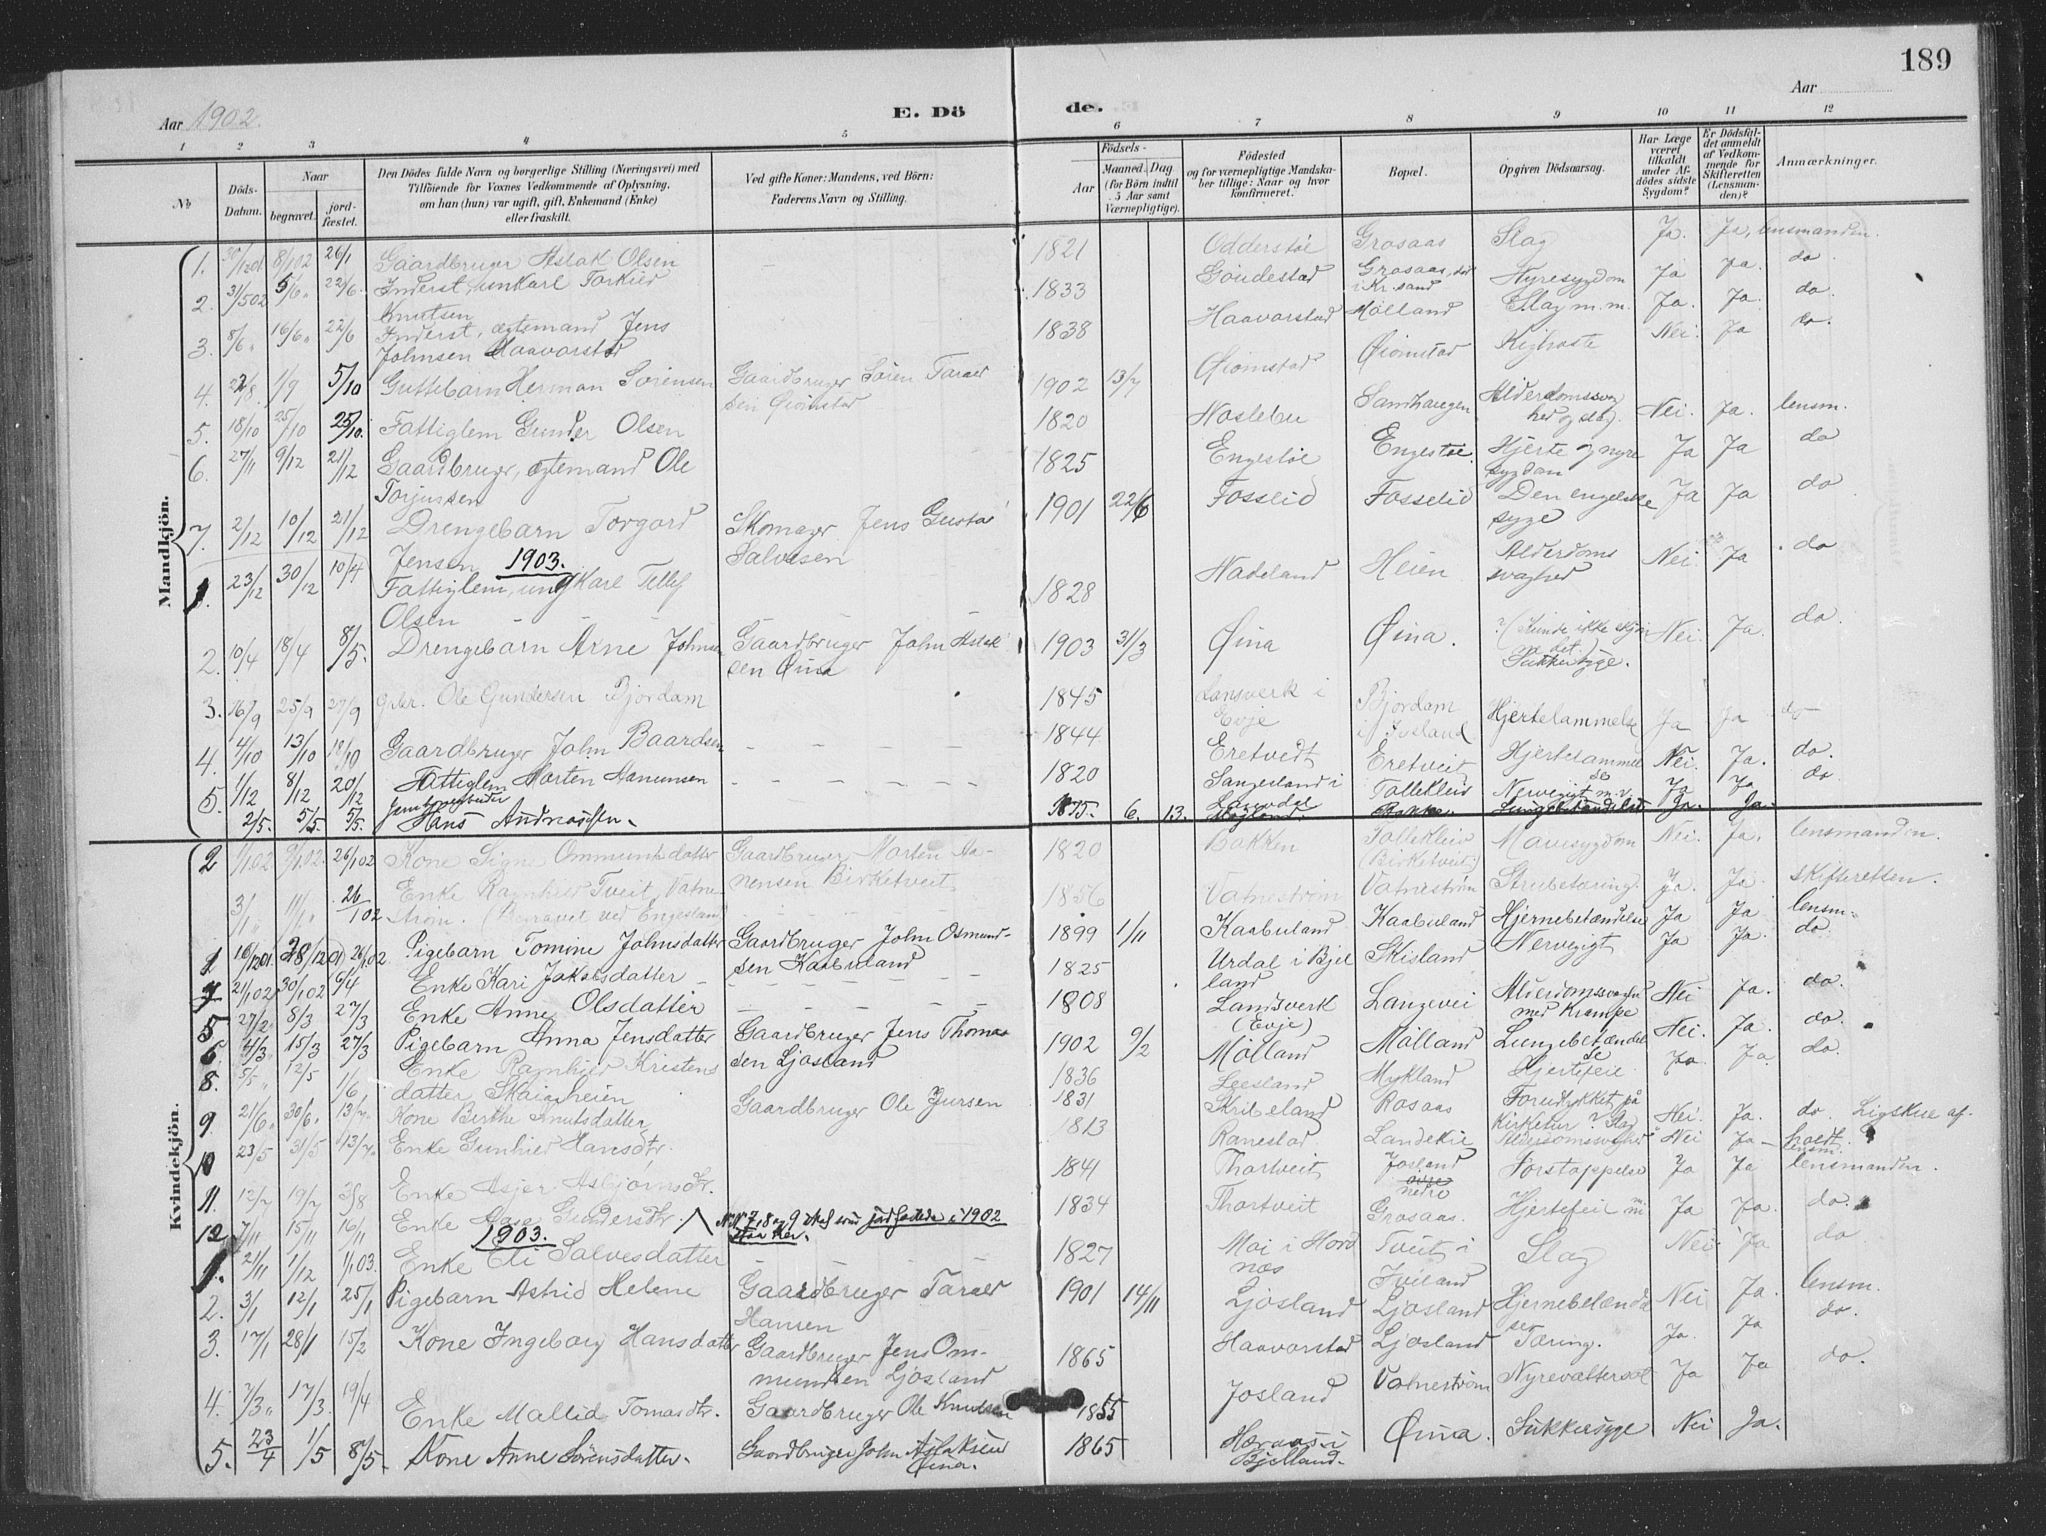 189
Aar 1902.
E. Dö
de.
Aar
1 2 3 4 5 6 7 8 9 10 11 12
No
Döds-Datum.
Naar
begravet.
jord-fæstet.
Den Dödes fulde Navn og borgerlige Stilling (Næringsvei) med
Tilföiende for Voxnes Vedkommende af Oplysning,
om han (hun) var ugift, gift, Enkemand (Enke)
eller fraskilt.
Ved gifte Koner: Mandens, ved Börn:
Faderens Navn og Stilling.
Födsels-
Aar
Maaned. Dag
(for Börn indtil
5 Aar samt
Værnepligtige).
Födested
og for værnepligtige Mandska-
ber tillige: Naar og hvor
konfirmeret.
Bopæl.
Opgiven Dödsaarsag.
Har Læge
været
tilkaldt
under Af-
dödes sidste
Sygdom?
Er Dödsfal-
det anmeldt
af Vedkom-
mende for
Skifteretten
(Lensman-
den)?
Anmærkninger.
Mandkjön.
1. 8/1 02 26/1 Gaardbruger Aslak Olsen 1821 Odderstøe Grosaas Slag Ja. Ja, lensmanden.
2. 31/5 02 5/6 22/6 Inderst, unkarl Torkild Knutsen 1833 Gaudestad Grosaas, død i Kr.sand Nyresygdom Ja Ja. do
3. 8/6 16/6 22/6 Inderst, egtemand Jens Johnsen Haavorstad 1838 Haavorstad Mølland Slag m.m. Ja. Ja. do.
4. 1/9 5/10 Guttebarn Herman Sørensen Gaardbruger Sören Taral sen Øiomstad 1902 13/7 Øiomstad Øiomstad Kighoste Nei. Ja do.
5. 18/10 25/10 25/10. Fattiglem Gunder Olsen 1820 Naslebu Sandhaugen Alderdomssvag hed og slag. Nei. Ja. lensm.
6. 27/11 9/12 21/12 Gaardbruger, egtemand Ole Torjussen 1825 Engestøe Engestøe. Hjerte og nyre sygdom Ja Ja do
7. 2/12 10/12 21/12 Drengebarn Torgard Jensen Skomager Jens Gustav Salvesen 1901 22/6 Fosselid Fosselid Den engelske syge Ja Ja do
1903.
1. 23/12 30/12 10/4 Fattiglem, ungkarl Tellef Olsen 1828 Hadeland Heien Alderdoms svaghed Nei. Ja do
2. 10/4 18/4 8/5. Drengebarn Arne Johnsen Gaardbruger John Aslak sen Øina 1903 31/3 Øina Øina. ?(Kunde ikke skjøn na det.) Sukkersyge. Nei. Ja. do.
3. 16/9 25/9 27/9 gbr. Ole Gundersen Bjordam 1845 Lansverk i Evje Bjordam i Iveland Hjertelammelse Ja Ja do
4. 4/10 13/10 18/10 Gaardbruger John Baardsen 1844 Eretvedt Eretveit Hjertelammelse Nei. Ja. do.
5. 1/12 8/12 20/12 Fattiglem Morten Hanensen 1820 Sangesland i Tollekleiv Nervegigt m.v. Ja Ja do
2/5. 5/5. 5/5. Hans Andreassen. 1875. 6. 13. Bakke. Lungebetændelse Ja. Ja.
Kvindekjön.
2 1/1 02 9/1 02. 26/1 02 Kone Signe Ommundsdatter Gaardbruger Morten Ha- nensen Birketveit 1820 Bakken Tollekleiv (Birketveit) Mavesygdom Nei. Ja. lensmanden.
3/1 11/1 26/1 02 Enke Ragnhild Tveit, Vatne strøm. (Begravet ved Engesland 1856 Vatneström Vatneström Strubetæring. Ja. Ja. skifteretten.
1 16/12 01 28/12 01 26/1 02 Pigebarn Tomine Johnsdatter Gaardbruger John Osmund- sen Kaabuland 1899 1/11 Kaabuland Kaabuland Hjernebetændelse Ja Ja lensm.
21/1 02 30/1 02 6/4 Enke Kari Jakobsdatter 1825 Urdal i Bjel land Skisland Nervegigt Ja Ja. do
5 27/2 8/3 27/3 Enke Anne Olsdatter 1808 Landsverk (Evje) Langevei Alderdomssvaghed med Krampe Nei Ja. do.
6. 4/3 15/3 27/3 Pigebarn Anna Jensdatter Gaardbruger Jens Thomas sen Ljosland 1902 9/2 Mølland Mølland Lungebetændelse Nei. Ja. do.
8. 5/5 12/5 1/6 Enke Ragnhild Kristens datter Skaiaheien 1836 Leesland Mykland Hjertefeil Ja. Ja do.
9. 21/6 30/6 13/7 Kone Birthe Knutsdatter Gaardbruger Ole Jursen 1831 Skribeland Rosaas Forulykket på Kirketur ? Slag Nei. Ja. do Ligskue af- holdt.
10 23/5 31/5 13/7 Enke Gunhild Hansdtr 1813 Ranestad Landekil Alderdomssvaghed Nei Ja lensm.
11. 12/7 19/7 3/8 Enke Asjer Asbjørnsdtr. 1841 Thortveit Josland nedre Forstoppelse Ja Ja lensmanden.
12 7/11 15/11 16/11 Enke Aase Gundersdtr. 1834 Thortveit Grosaas. Hjertefeil m.m. Ja Ja. do.
N.N 7, 8 og 9 skal som jordfæstede i 1902 staa her.
1903.
1. 21/11 1/12 1/1 03. Enke Eli Salvesdatter 1827 Moi i Hord næs Tveit i Iveland Slag Nei Ja do
2. 3/1 12/1 25/1 Pigebarn Astrid Helene Gaardbruger Tarald Hansen 1901 14/11 Ljosland Ljosland Hjernebetændelse Nei Ja. lensm.
3. 17/1 28/1 15/2 Kone Ingeborg Hansdatter Gaardbruger Jens Om- mundsen Ljosland 1865 Haavorstad Ljosland Tæring. Ja. Ja do.
4. 7/3 17/3. 19/4 Enke Mallid Tomasdtr. Gaardbruger Ole Knudsen 1855 Josland Vatneström Nyrevattersot Ja Ja do.
5. 23/4 1/5 8/5. Kone Anne Sørensdatter. Gaardbruger John Aslaksen Øina. 1865 Heraas i Bjelland. Øina. Sukkersyge Nei Ja.